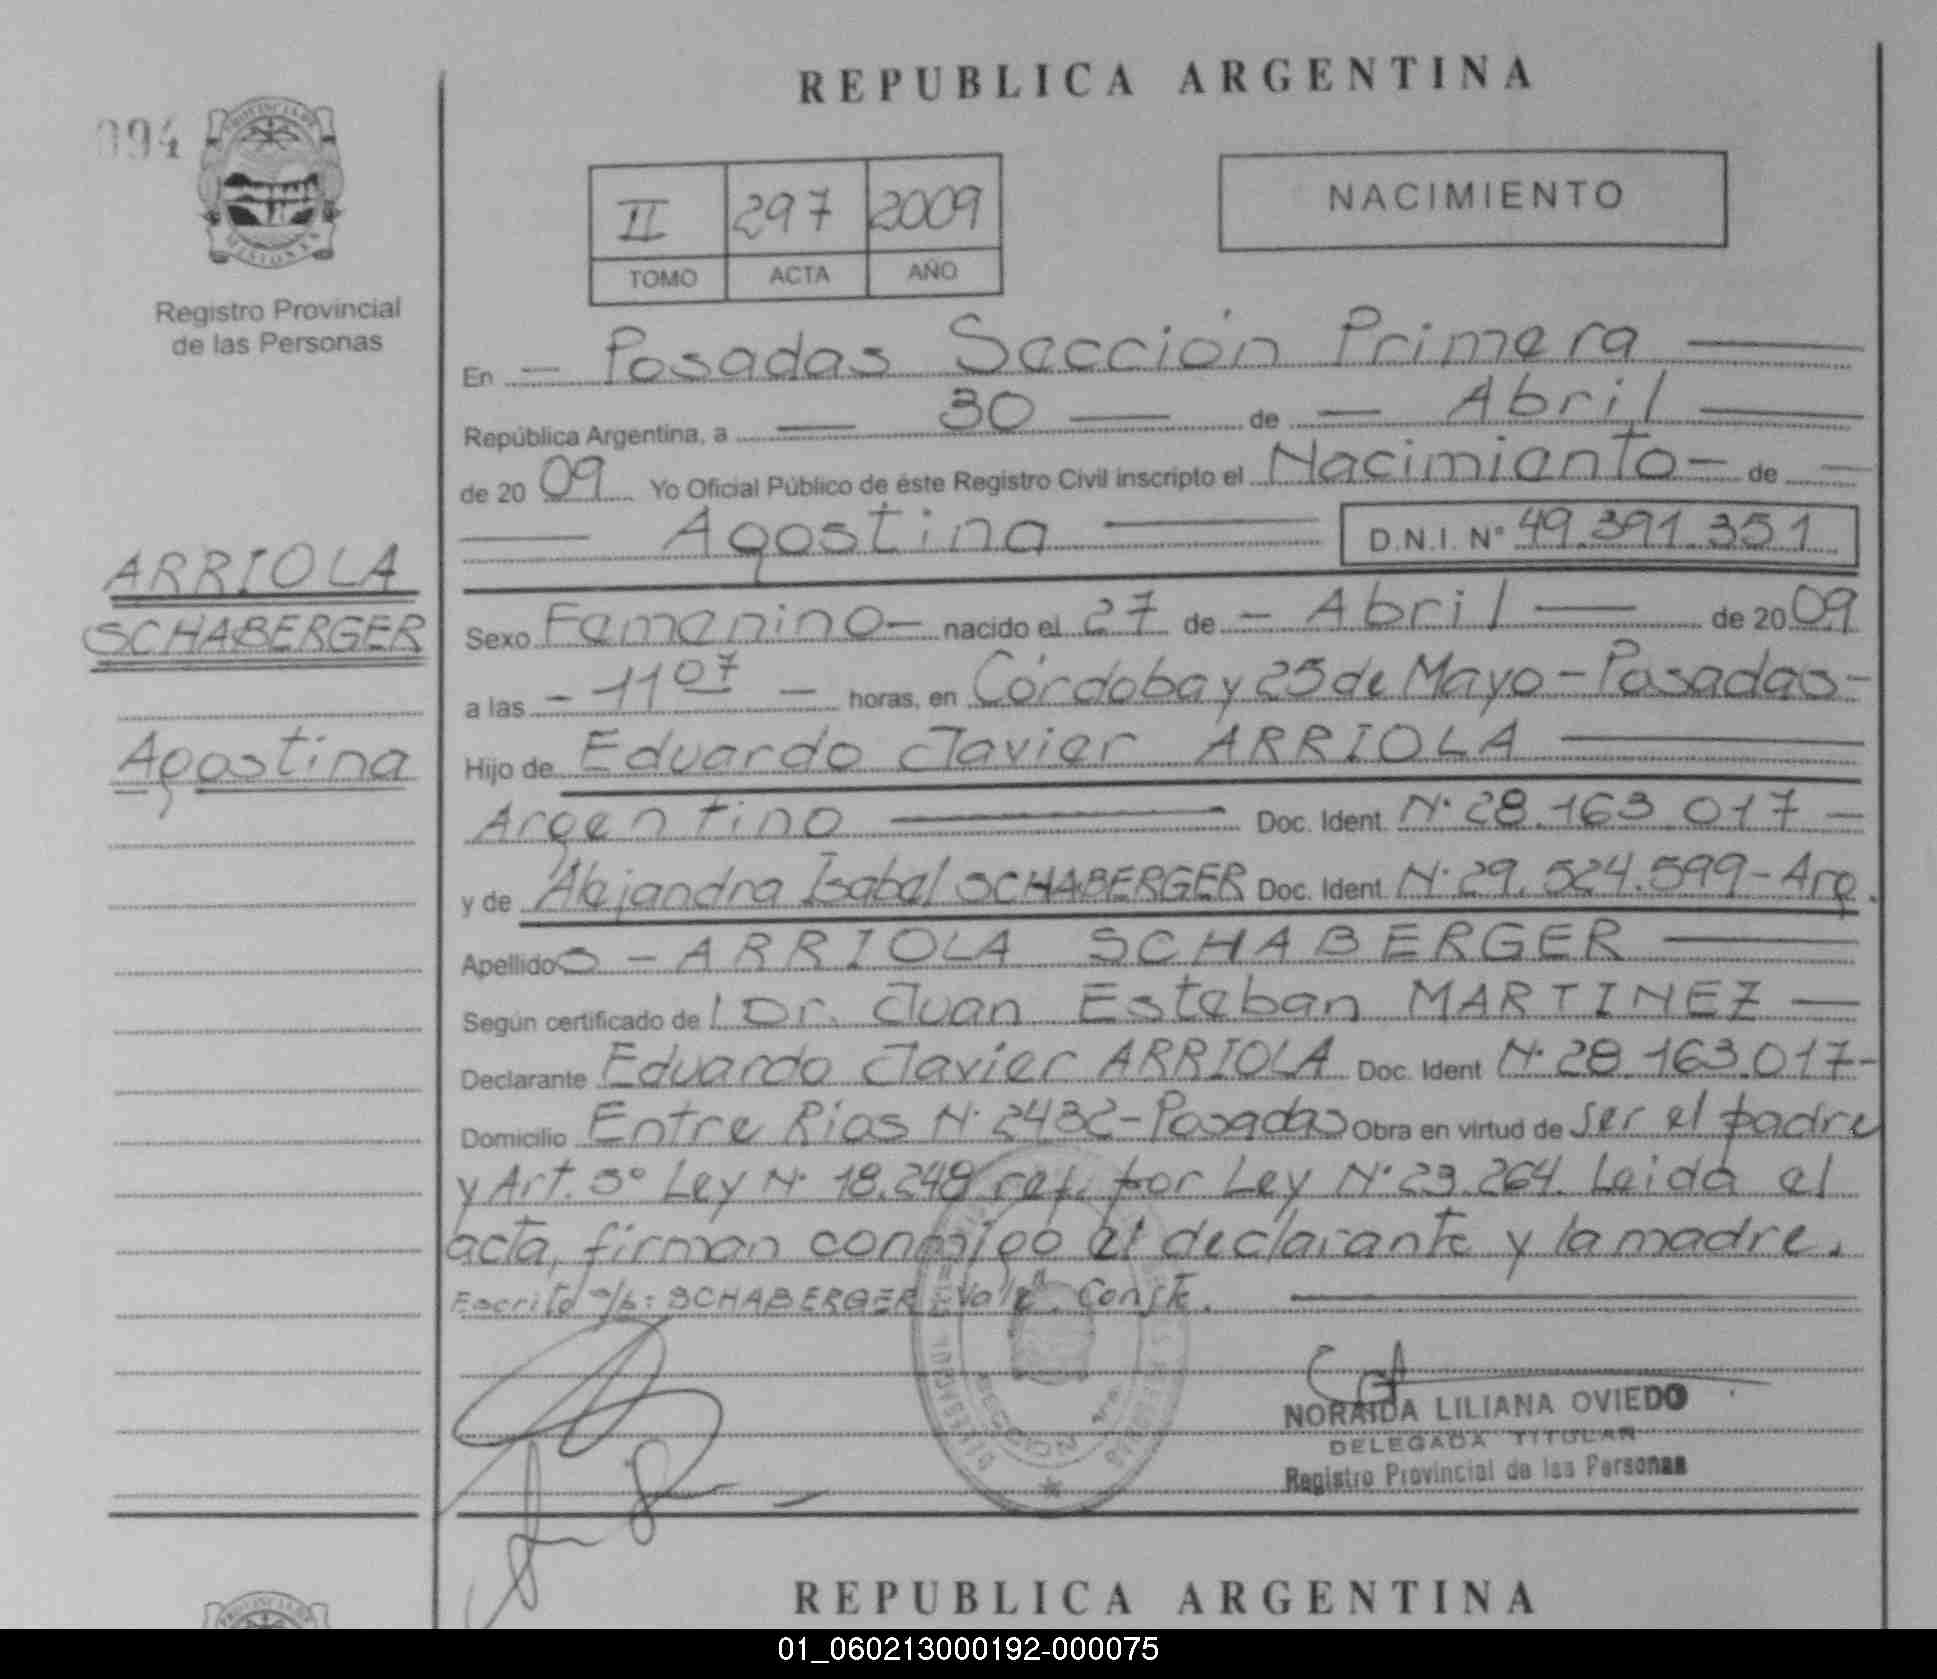 REPUBLICA ARGENTINA
094
PROVINCIA DE
MISIONES
Registro Provincial
de las Personas
II 297 2009
TOMO ACTA AÑO
NACIMIENTO
En — Posadas Sección Primera —
República Argentina, a — 30 — de — Abril —
de 2009 Yo Oficial Público de éste Registro Civil inscripto el Nacimiento — de —
— Agostina — D.N.I. Nº 49.391.351
ARRIOLA
SCHABERGER
Agostina
Sexo Femenino — nacido el 27 de — Abril — de 2009
a las — 11 07 — horas, en Córdoba y 25 de Mayo - Posadas -
Hijo de Eduardo Javier ARRIOLA —
Argentino — Doc. Ident. Nº 28.163.017 —
y de Alejandra Isabel SCHABERGER Doc. Ident. Nº 29.524.599 - Arg.
Apellidos — ARRIOLA SCHABERGER —
Según certificado de l Dr. Juan Esteban MARTINEZ —
Declarante Eduardo Javier ARRIOLA Doc. Ident Nº 28.163.017 -
Domicilio Entre Rios Nº 2432 - Posadas Obra en virtud de ser el padre
y Art. 5º Ley Nº 18.248 ref. por Ley Nº 23.264. Leida el
acta, firman conmigo el declarante y la madre.
Escrito s/b: SCHABERGER Vale. Conste. —
SECCION 1ra
NORAIDA LILIANA OVIEDO
DELEGADA TITULAR
Registro Provincial de las Personas
REPUBLICA ARGENTINA
PROVINCIA DE
01_060213000192-000075